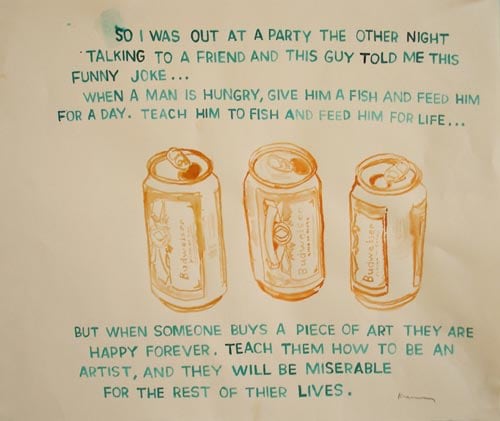 SO I WAS OUT AT A PARTY THE OTHER NIGHT
TALKING TO A FRIEND AND THIS GUY TOLD ME THIS
FUNNY JOKE...
WHEN A MAN IS HUNGRY, GIVE HIM A FISH AND FEED HIM
FOR A DAY. TEACH HIM TO FISH AND FEED HIM FOR LIFE...
Budweiser
Budweiser
Budweiser
BUT WHEN SOMEONE BUYS A PIECE OF ART THEY ARE
HAPPY FOREVER. TEACH THEM HOW TO BE AN
ARTIST, AND THEY WILL BE MISERABLE
FOR THE REST OF THIER LIVES.